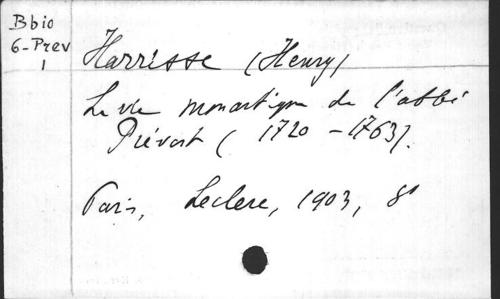 Bbio
6-Prev
1
Harrisse (Henry)
La vie monastique de l'abbé
Prévost (1720-1763).
Paris, Leclerc, 1903, 8°